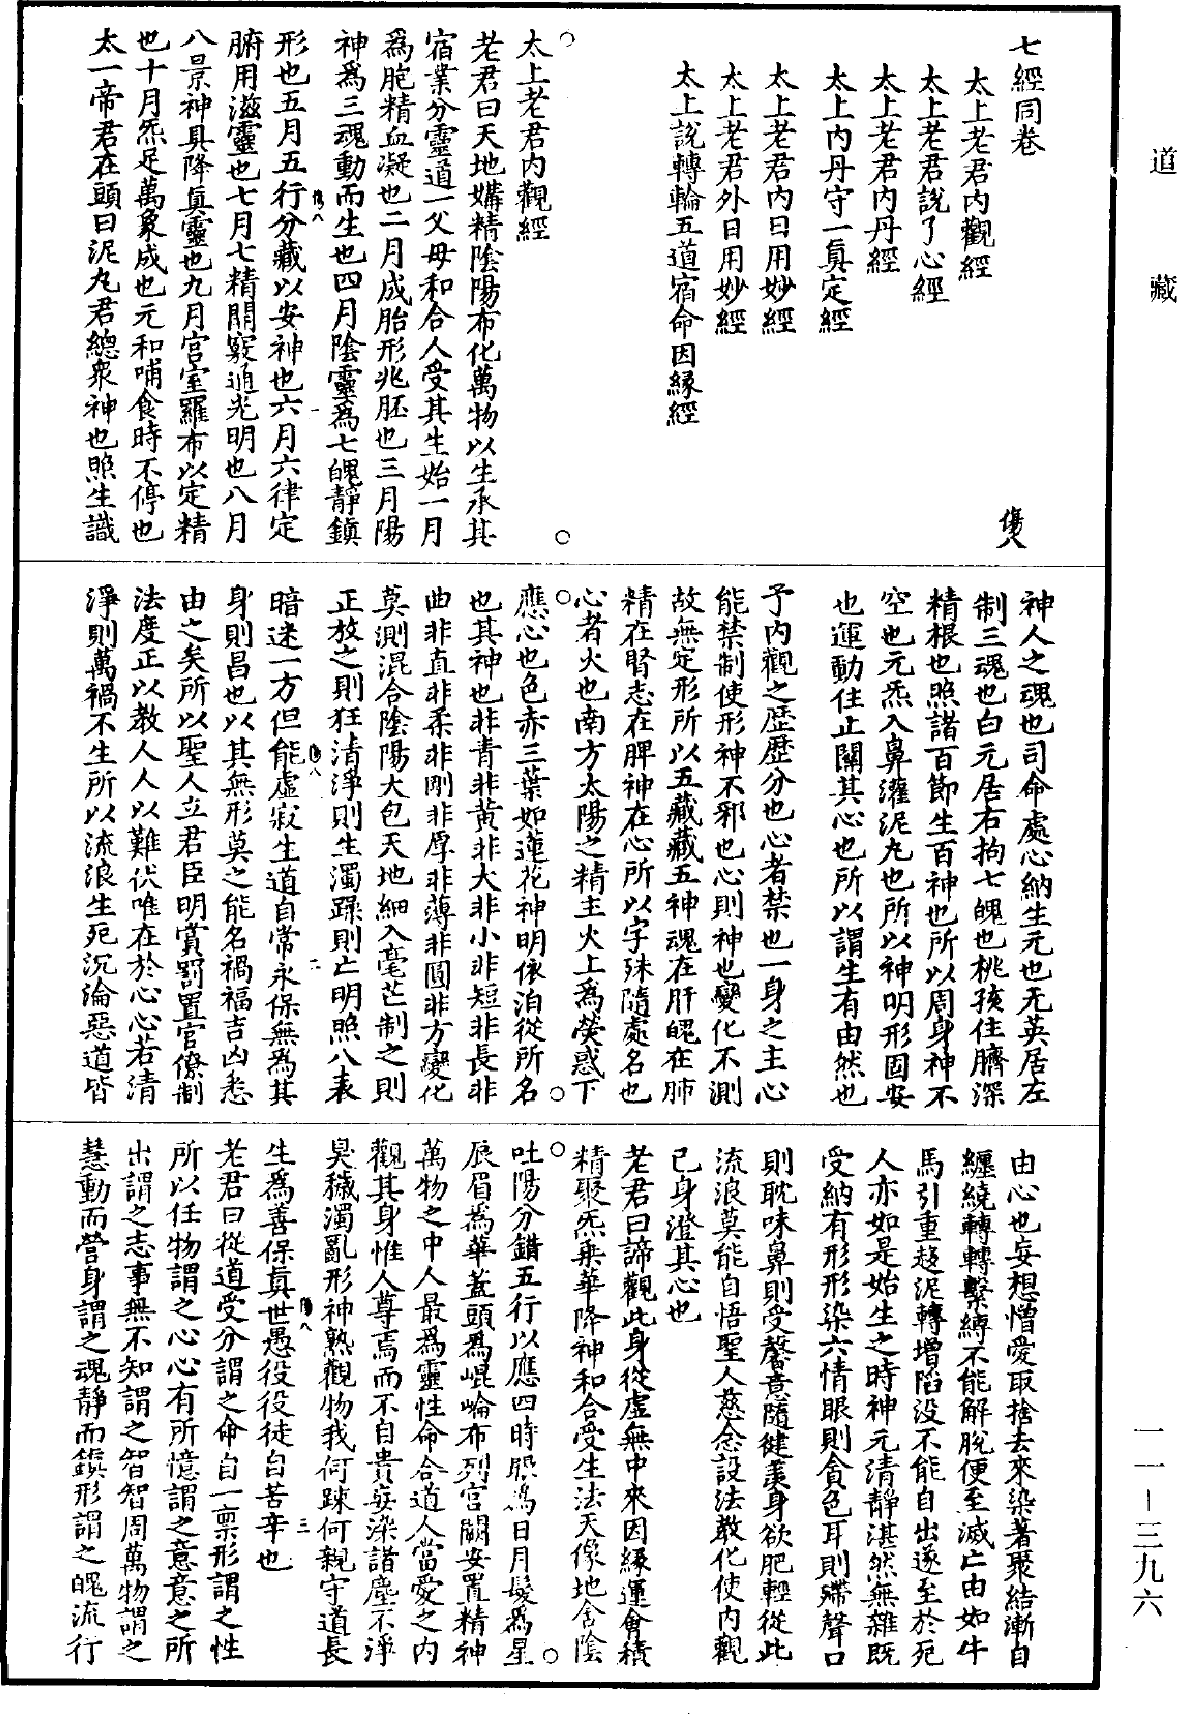 道藏
七經同卷 傷八
太上老君內觀經
太上老君說了心經
太上老君內丹經
太上內丹守一真定經
太上老君內日用妙經
太上老君外日用妙經
太上說轉輪五道宿命因緣經
太上老君內觀經
老君曰天地媾精陰陽布化萬物以生承其
宿業分靈道一父母和合人受其生始一月
爲胞精血凝也二月成胎形兆胚也三月陽
神爲三魂動而生也四月陰靈爲七魄靜鎮
形也五月五行分藏以安神也六月六律定
腑用滋靈也七月七精開竅通光明也八月
八景神具降真靈也九月宮室羅布以定精
也十月炁足萬象成也元和哺食時不停也
太一帝君在頭曰泥丸君總衆神也照生識
神人之魂也司命處心納生元也无英居左
制三魂也白元居右拘七魄也桃孩住臍深
精根也照諸百節生百神也所以周身神不
空也元炁入鼻灌泥丸也所以神明形固安
也運動住止關其心也所以謂生有由然也
予內觀之歷歷分也心者禁也一身之主心
能禁制使形神不邪也心則神也變化不測
故無定形所以五藏藏五神魂在肝魄在肺
精在腎志在脾神在心所以字殊隨處名也
心者火也南方太陽之精主火上爲熒惑下
應心也色赤三葉如蓮花神明依泊從所名
也其神也非青非黃非大非小非短非長非
曲非直非柔非剛非厚非薄非圓非方變化
莫測混合陰陽大包天地細入毫芒制之則
正放之則狂清淨則生濁躁則亡明照八表
暗迷一方但能虛寂生道自常永保無爲其
身則昌也以其無形莫之能名禍福吉凶悉
由之矣所以聖人立君臣明賞罰置官僚制
法度正以教人人以難伏唯在於心心若清
淨則萬禍不生所以流浪生死沉淪惡道皆
由心也妄想憎愛取捨去來染著聚結漸自
纏繞轉轉繫縛不能解脫便至滅亡由如牛
馬引重趍泥轉增陷没不能自出遂至於死
人亦如是始生之時神元清靜湛然無雜既
受納有形形染六情眼則貪色耳則殢聲口
則耽味鼻則受馨意隨健羨身欲肥輕從此
流浪莫能自悟聖人慈念設法教化使內觀
己身澄其心也
老君曰諦觀此身從虛無中來因緣運會積
精聚炁乘華降神和合受生法天像地含陰
吐陽分錯五行以應四時眼爲日月髮爲星
辰眉爲華蓋頭爲崐崘布列宮闕安置精神
萬物之中人最爲靈性命合道人當愛之內
觀其身惟人尊焉而不自貴妄染諸塵不淨
臭穢濁亂形神熟觀物我何踈何親守道長
生爲善保真世愚役役徒自苦辛也
老君曰從道受分謂之命自一禀形謂之性
所以任物謂之心心有所憶謂之意意之所
出謂之志事無不知謂之智智周萬物謂之
慧動而營身謂之魂靜而鎮形謂之魄流行
一一－三九六